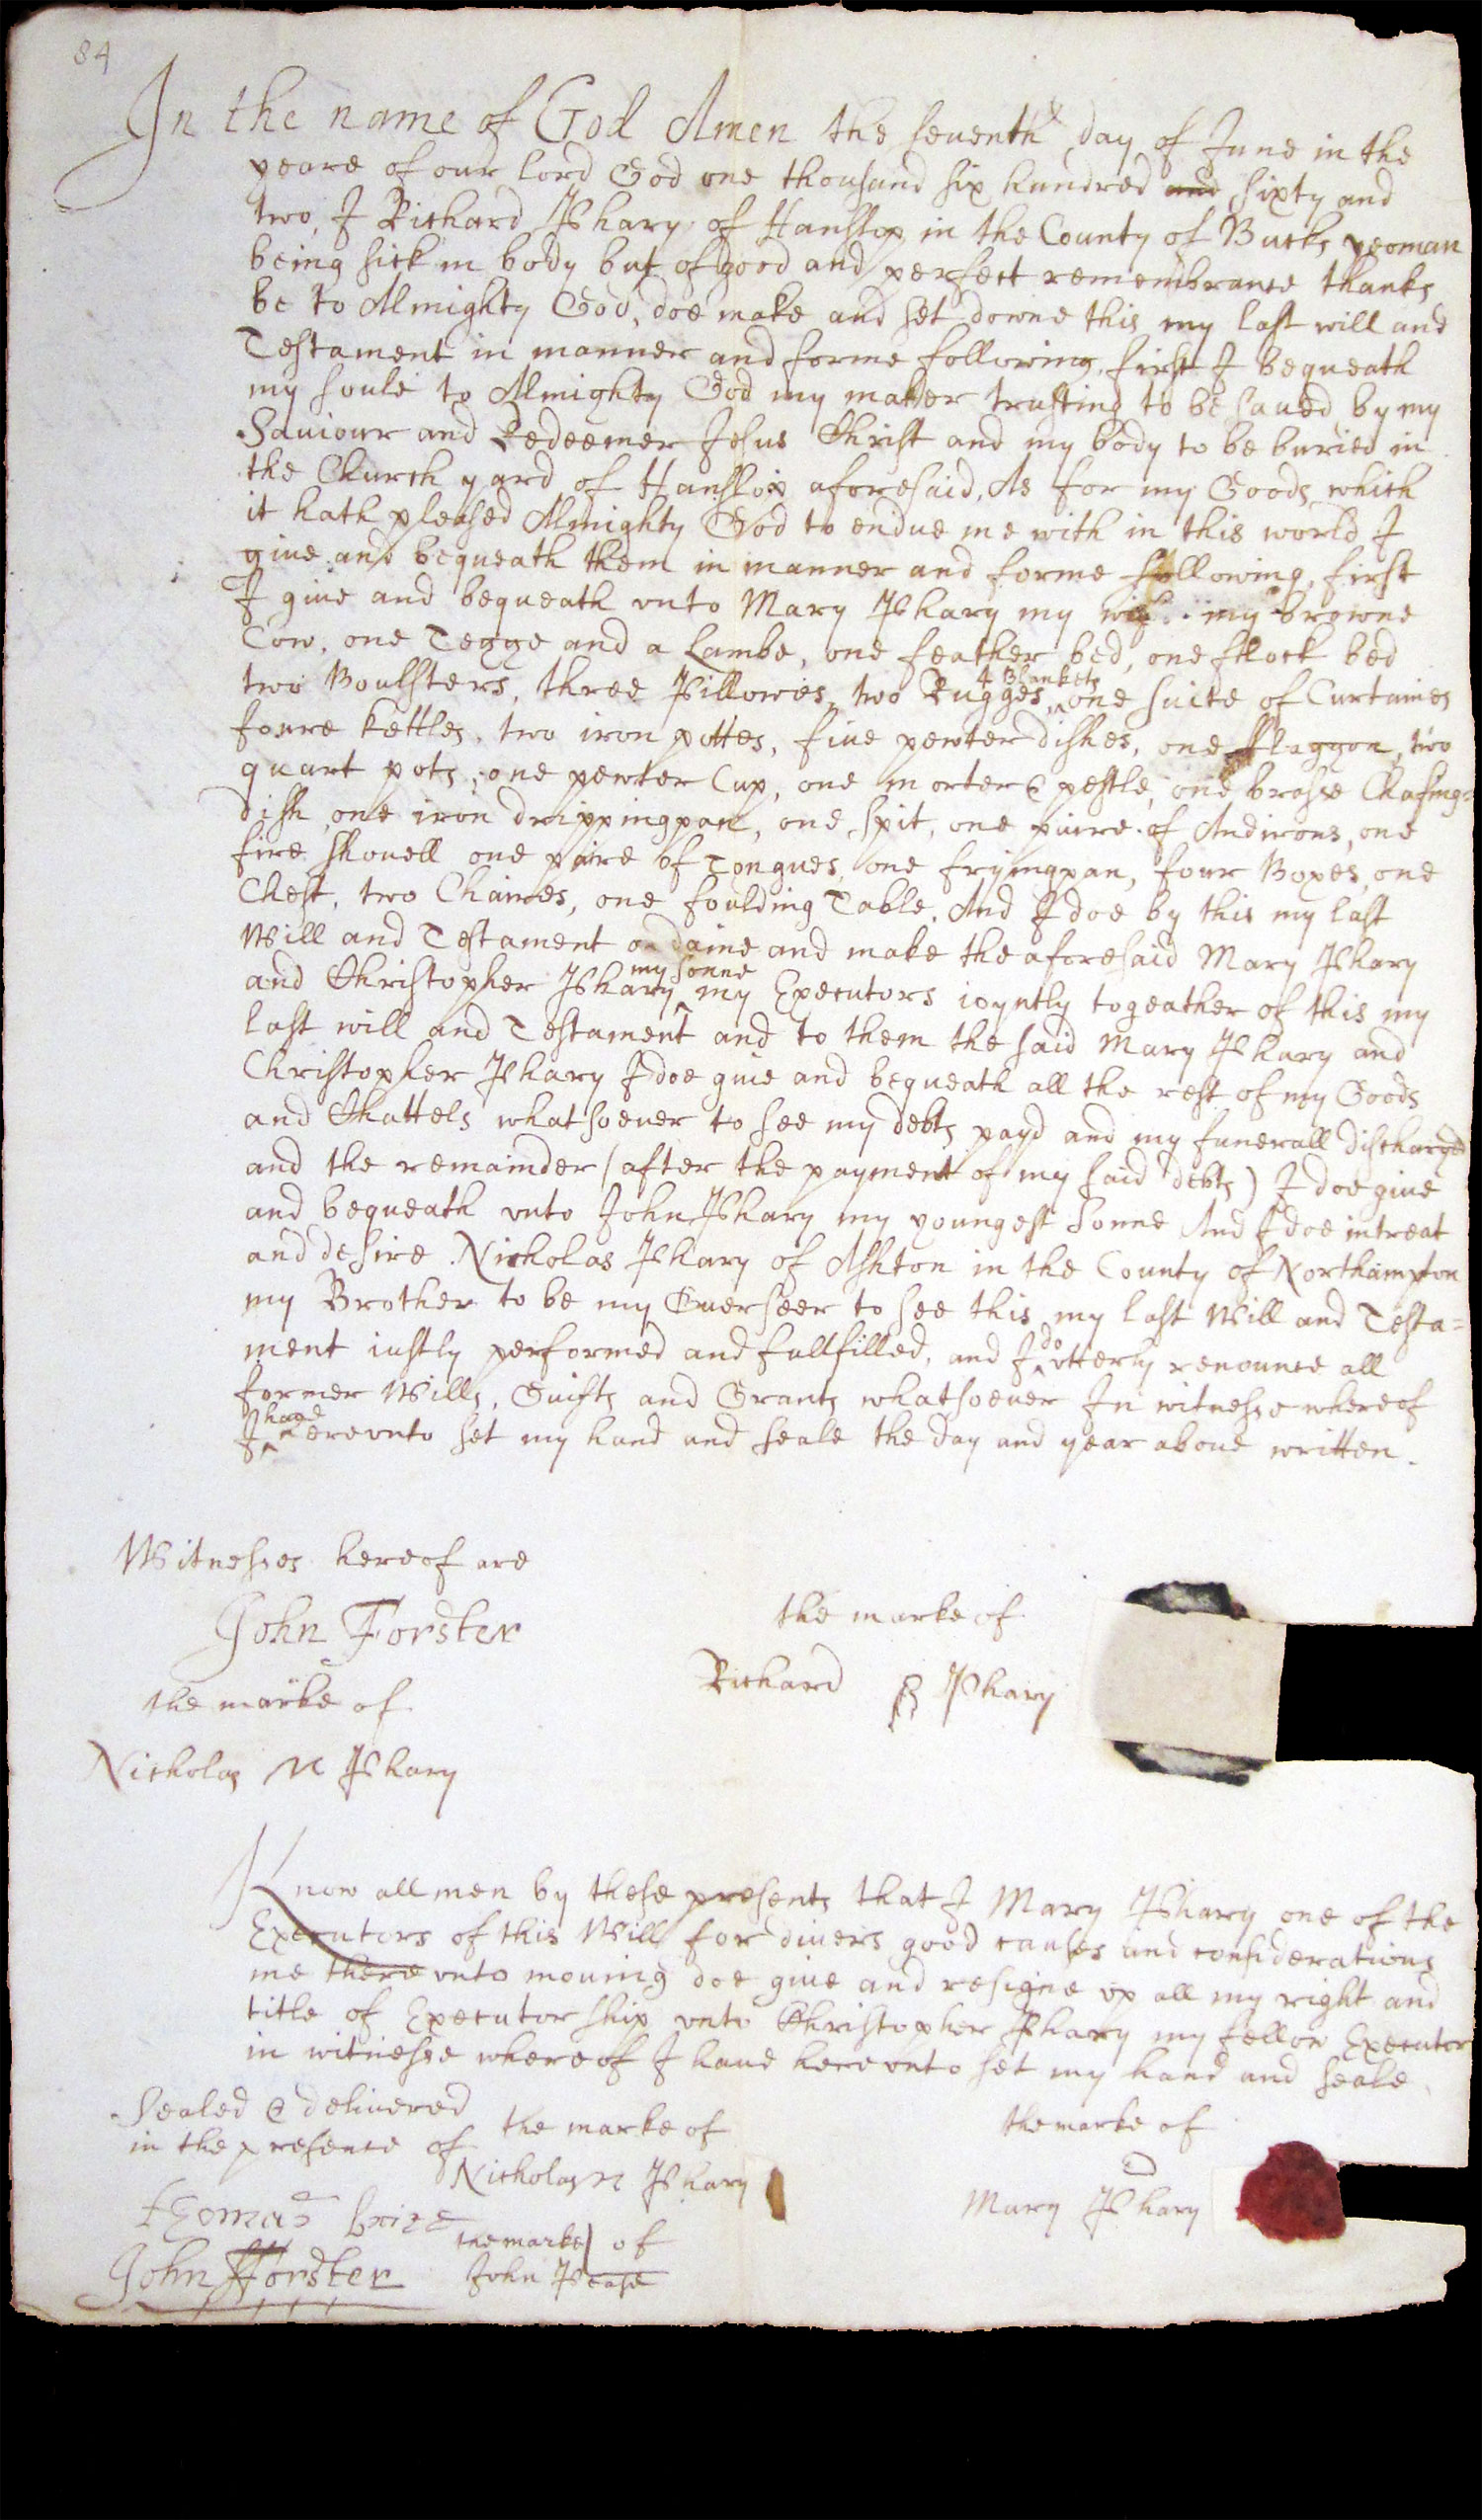 84
In the name of God Amen the seuenth day of June in the
yeare of our lord God one thousand six hundred and sixty and
two, I Richard Phary of Hanslop in the County of Bucks yeoman
being sick in body but of good and perfect remembrance thanks
be to Almighty God, doe make and set downe this my last will and
Testament in manner and forme following, first I bequeath
my soule to Almighty God my maker trusting to be saued by my
Saviour and Redeemer Jesus Christ and my body to be buried in
the Church yard of Hanslop aforesaid, As for my Goods which
it hath pleased Almighty God to endue me with in this world I
giue and bequeath them in manner and forme following, first
I giue and bequeath vnto Mary Phary my wife my browne
Cow, one Tegge and a Lambe, one feather bed, one flock bed
4 Blankets
two Boulsters, three Pillowes, two Rugges, one suite of Curtaines
foure kettles, two iron pottes, fiue pewter dishes, one flaggon, two
quart pots, one pewter Cup, one morter & pestle, one brasse Chafing=
dish, one iron drippingpan, one spit, one paire of Andirons, one
fire shouell one paire of Tongues, one fryingpan, four Boxes, one
Chest, two Chaires, one foulding Table, And I doe by this my last
Will and Testament ordaine and make the aforesaid Mary Phary
my sonne
and Christopher Phary my Executors ioyntly togeather of this my
last will and Testament and to them the said Mary Phary and
Christopher Phary I doe giue and bequeath all the rest of my Goods
and Chattels whatsoeuer to see my debts payd and my funerall discharged
and the remainder (after the payment of my said debts) I doe giue
and bequeath vnto John Phary my youngest Sonne And I doe intreat
and desire Nicholas Phary of Ashton in the County of Northampton
my Brother to be my Ouerseer to see this my last Will and Testa=
do
ment iustly performed and fullfilled, and I vtterly renounce all
former Wills, Guifts and Grants whatsoeuer In witnesse whereof
haue
I herevnto set my hand and seale the day and year aboue written.
Witnesses hereof are
John Forster
the marke of
Richard Phary
the marke of
Nicholas N Phary
Know all men by these presents that I Mary Phary one of the
Executors of this Will for diuers good causes and considerations
me there vnto mouing doe giue and resigne vp all my right and
title of Executor ship vnto Christopher Phary my fellow Executor
in witnesse whereof I haue herevnto set my hand and seale
Sealed & deliuered
in the presence of
the marke of
Nicholas N Phary
the marke of
Mary Phary
Thomas Price
the marke of
John Pease
John Forster